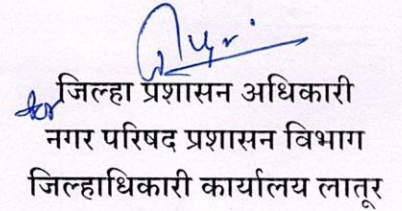 for जिल्हा प्रशासन अधिकारी
नगर परिषद प्रशासन विभाग
जिल्हाधिकारी कार्यालय लातूर